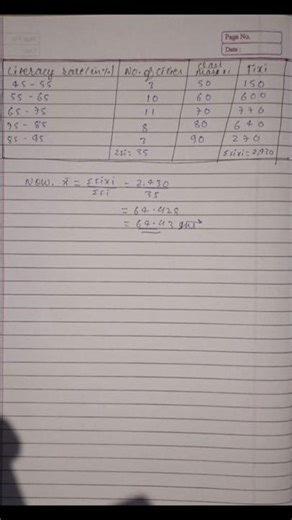 Page No.
Date :
Literacy rate (in %) No. of Cities Class marks xi fixi
45 - 55 3 50 150
55 - 65 10 60 600
65 - 75 11 70 770
75 - 85 8 80 640
85 - 95 3 90 270
Σfi = 35 Σfixi = 2,430
NOW, x̄ = Σfixi = 2,430
Σfi 35
= 69.428
= 69.43